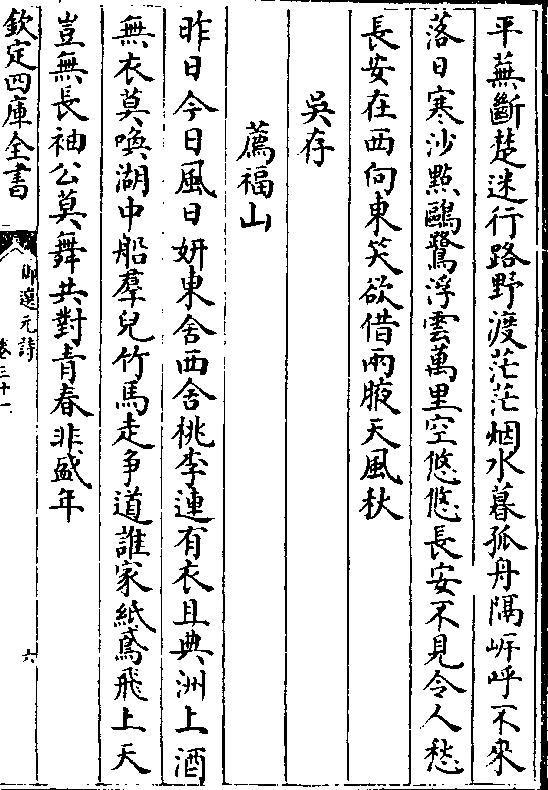 平蕪斷楚迷行路野渡茫茫烟水暮孤舟隔㟁呼不來
落日寒沙點鷗鷺浮雲萬里空悠悠長安不見令人愁
長安在西向東笑欲借兩腋天風秋
吳存
薦福山
昨日今日風日妍東舍西舍桃李連有衣且典洲上酒
無衣莫喚湖中船羣兒竹馬走爭道誰家紙鳶飛上天
豈無長袖公莫舞共對青春非盛年
欽定四庫全書
御選元詩
卷三十一
六